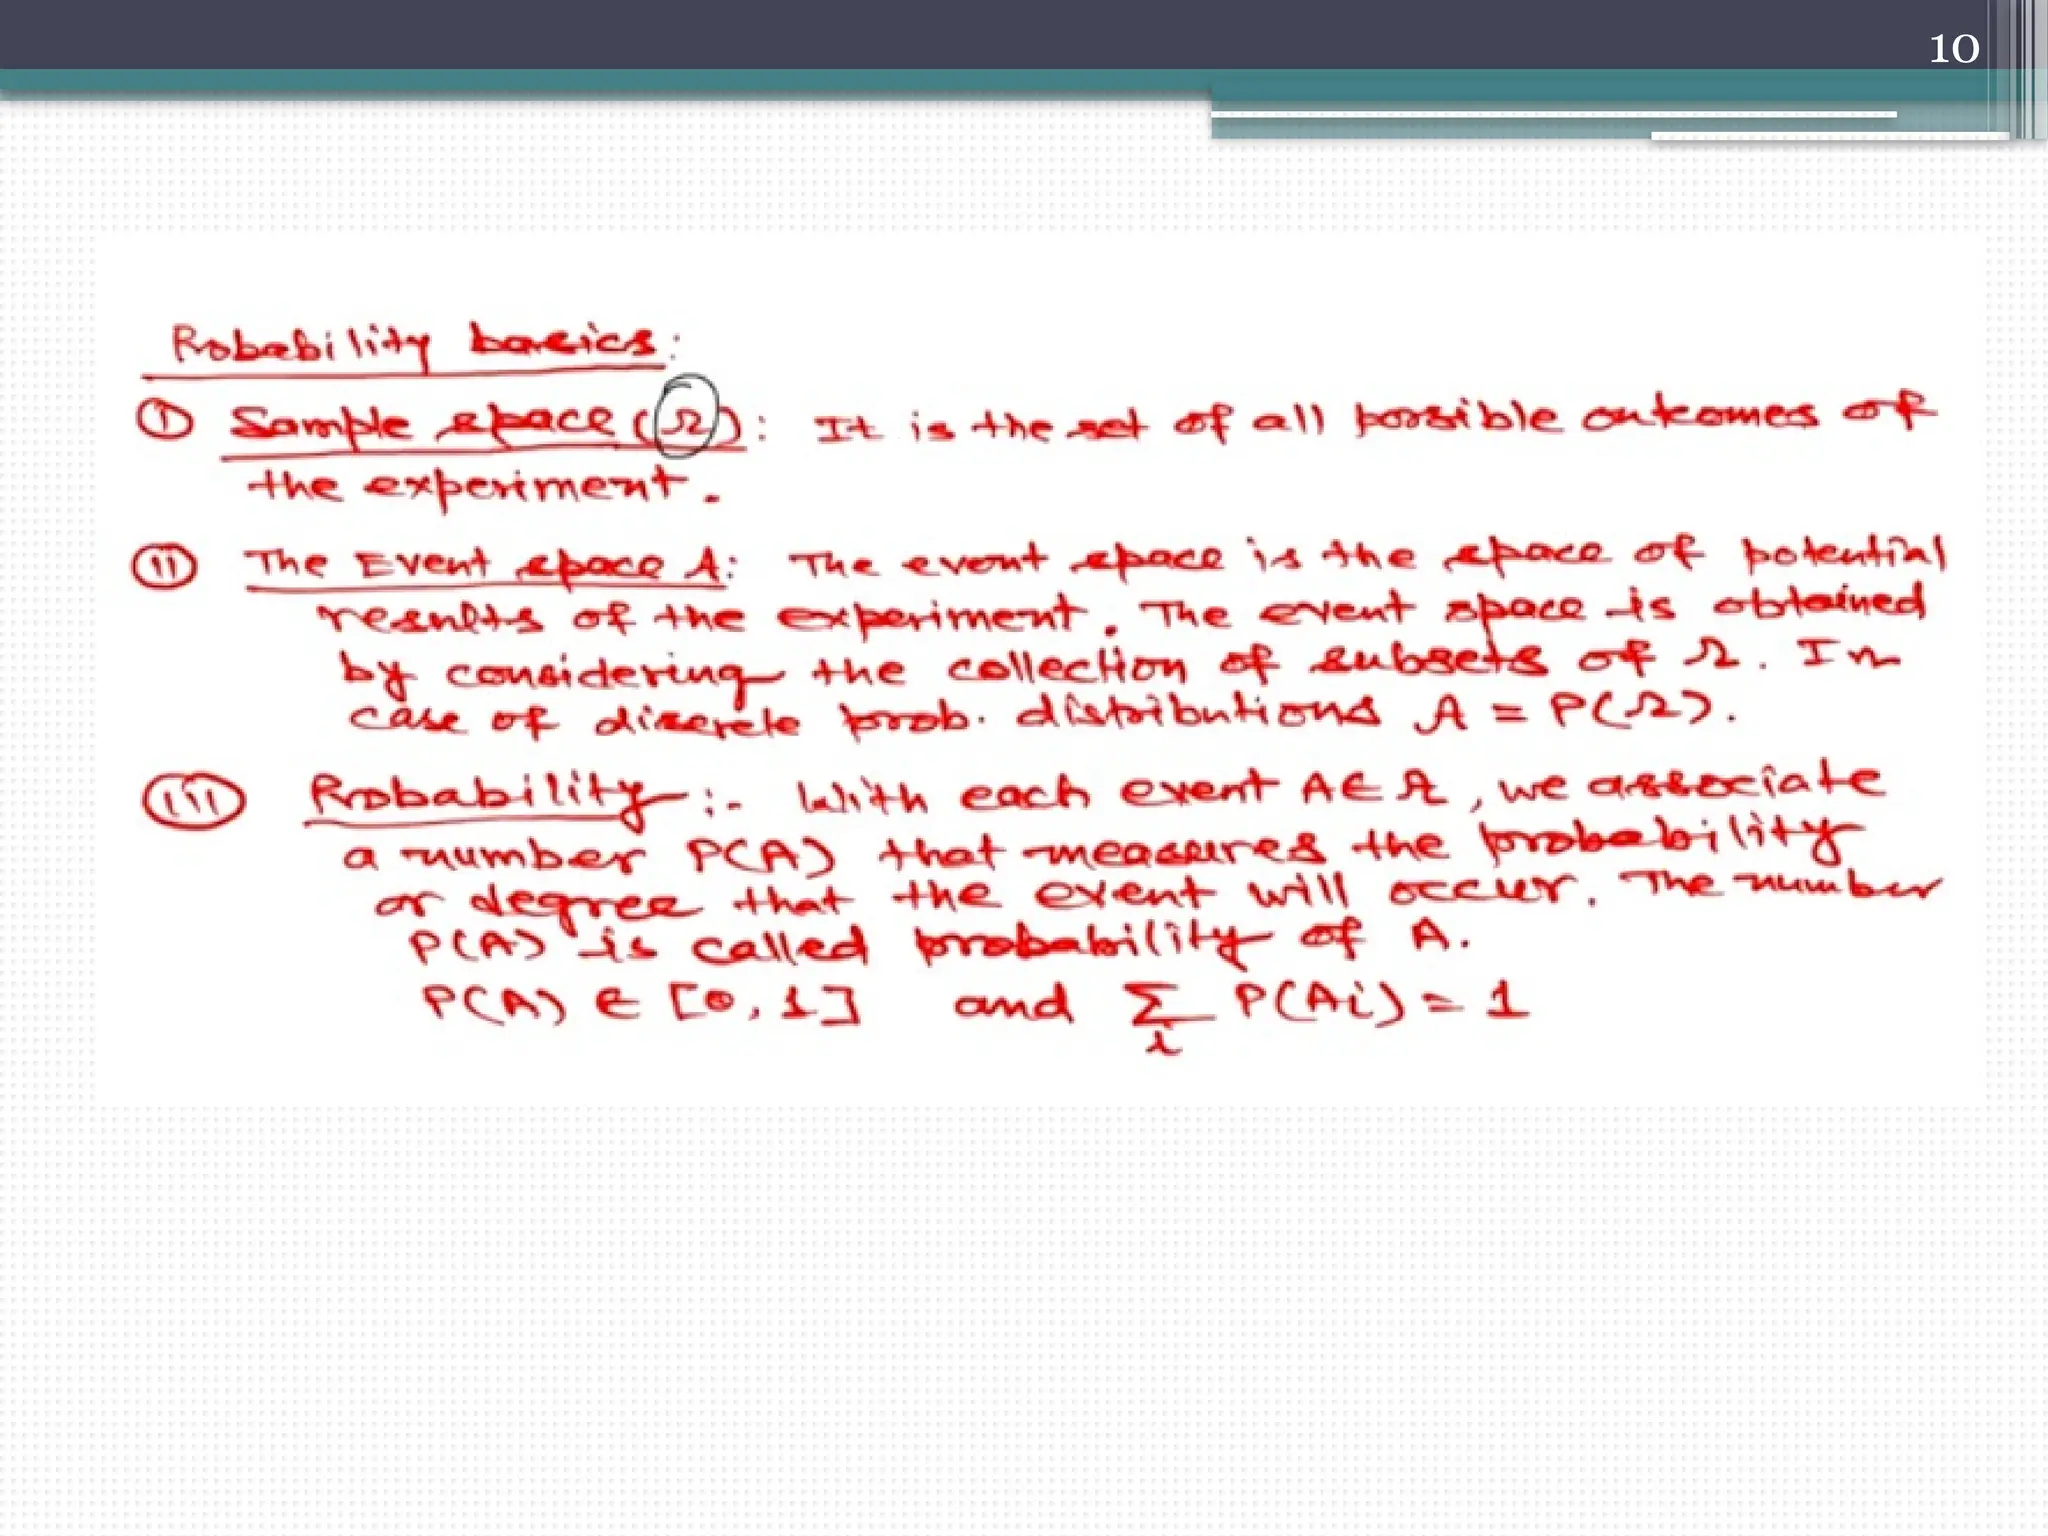 10
Probability basics:
(i) Sample space (Ω): It is the set of all possible outcomes of
the experiment.
(ii) The Event space A: The event space is the space of potential
results of the experiment. The event space is obtained
by considering the collection of subsets of Ω. In
case of discrete prob. distributions A = P(Ω).
(iii) Probability :- With each event A ∈ A, we associate
a number P(A) that measures the probability
or degree that the event will occur. The number
P(A) is called probability of A.
P(A) ∈ [0, 1] and Σ P(Ai) = 1
i